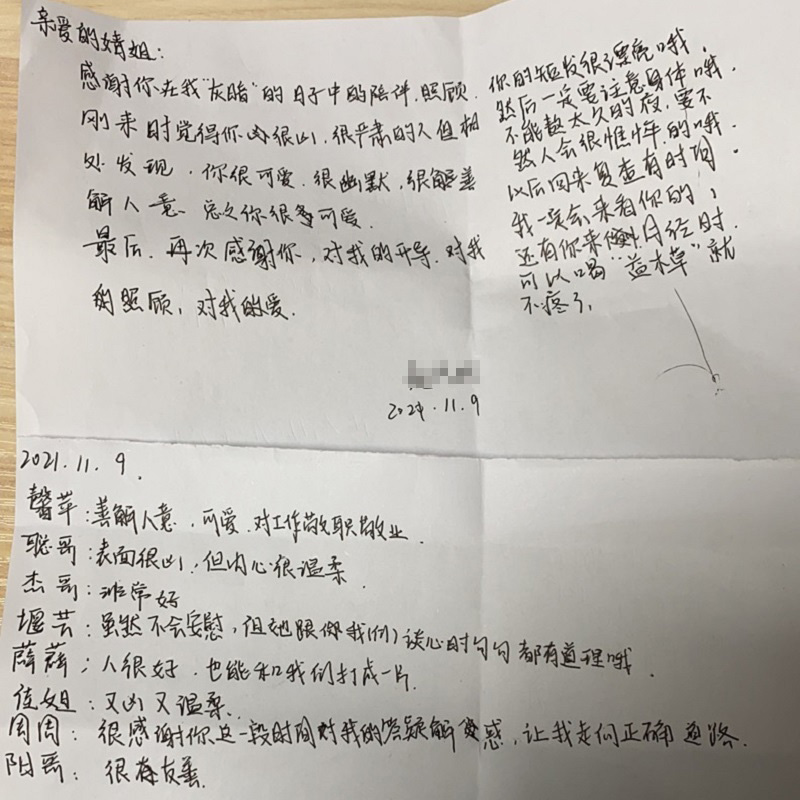 亲爱的婧姐:
感谢你在我"灰暗"的日子中的陪伴.照顾.
刚来时觉得你凶很凶,很严肃的人但相
处发现,你很可爱.很幽默,很解善
解人意、总之你很多可爱.
最后.再次感谢你,对我的开导.对我
的照顾,对我的爱.
2021.11.9
你的短发很漂亮哦,
然后一定要注意身体哦.
不能熬太久的夜,要不
然人会很憔悴的哦.
以后回来复查有时间.
我一定会来看你的;
还有你来月经时.
可以喝"益木草"就
不疼了,
2021.11.9.
馨苹:善解人意、可爱.对工作敬职敬业.
聪哥:表面很凶,但内心很温柔.
杰哥:非常好
堰芸:虽然不会安慰,但她跟你我(们)谈心时句句都有道理哦.
薛薛:人很好.也能和我们打成一片.
佐姐:又凶又温柔.
周周:很感谢你这一段时间对我的答疑解惑,让我走向正确道路.
阳哥:很友善.